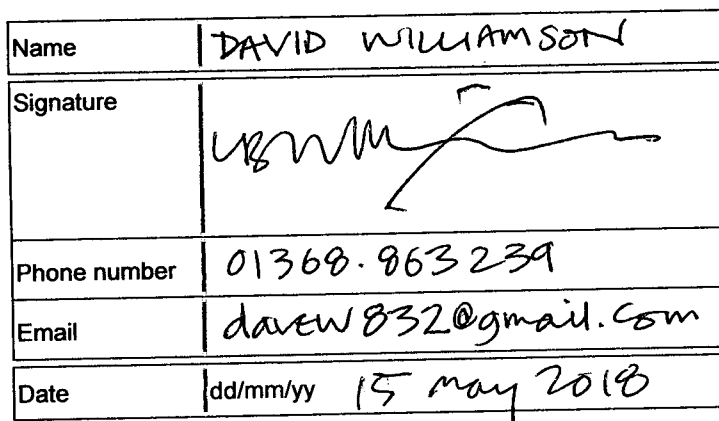 Name DAVID WILLIAMSON
Signature
Phone number 01368.863239
Email davew832@gmail.com
Date dd/mm/yy 15 may 2018